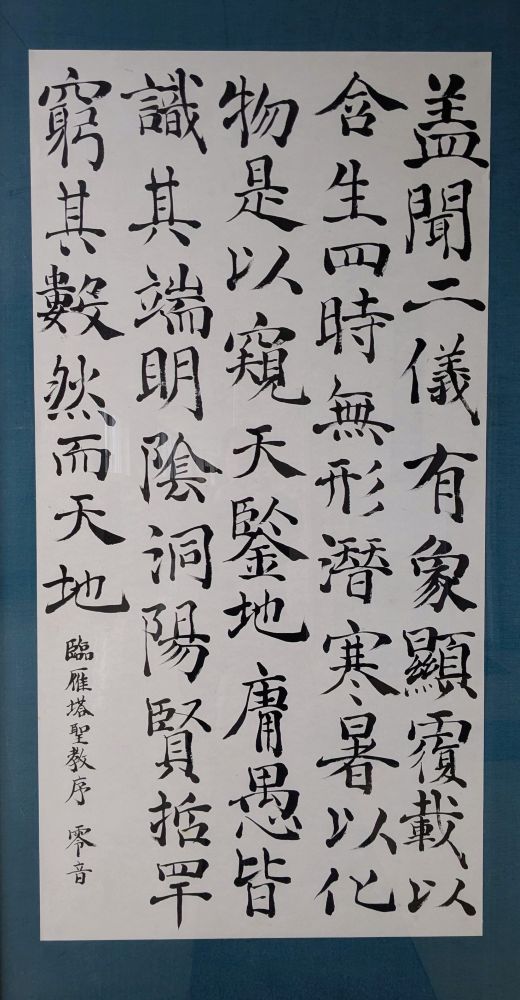 盖聞二儀有象顯覆載以
含生四時無形潛寒暑以化
物是以窺天鑒地庸愚皆
識其端明陰洞陽賢哲罕
窮其數然而天地
臨雁塔聖教序 零音